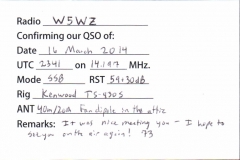 Radio W5WZ
Confirming our QSO of:
Date 16 March 2014
UTC 2341 on 14.197 MHz.
Mode SSB RST 59+30dB
Rig Kenwood TS-430S
ANT 40m/20m Fan dipole in the attic
Remarks: It was nice meeting you - I hope to
see you on the air again! 73